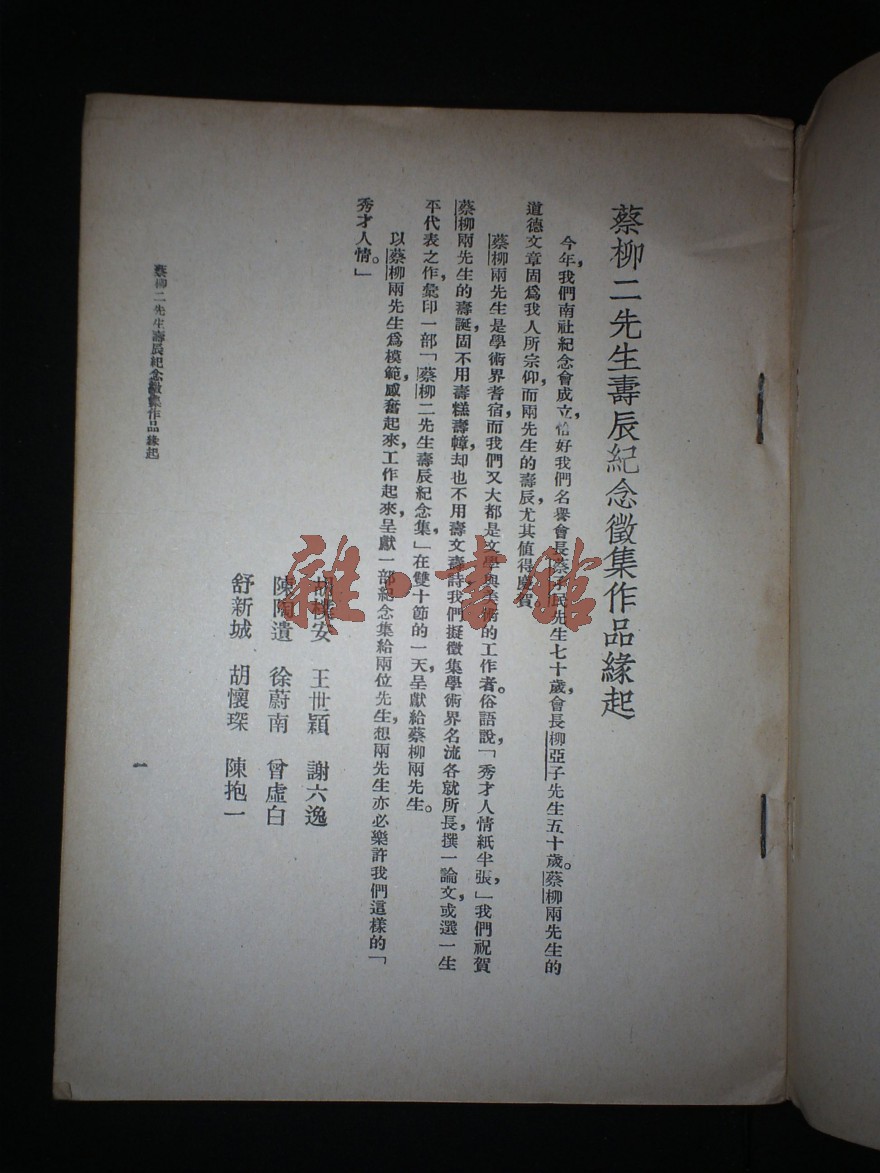 蔡柳二先生壽辰紀念徵集作品緣起
今年，我們南社紀念會成立，恰好我們名譽會長蔡孑民先生七十歲，會長柳亞子先生五十歲。蔡柳兩先生的
道德文章固爲我人所宗仰，而兩先生的壽辰，尤其值得慶賀。
蔡柳兩先生是學術界耆宿，而我們又大都是文學與美術的工作者。俗語說，「秀才人情紙半張，」我們祝賀
蔡柳兩先生的壽誕，固不用壽糕壽幛，却也不用壽文壽詩，我們擬徵集學術界名流各就所長，撰一論文，或選一生
平代表之作，彙印一部「蔡柳二先生壽辰紀念集，」在雙十節的一天，呈獻給蔡柳兩先生。
以蔡柳兩先生爲模範，感奮起來，工作起來，呈獻一部紀念集給兩位先生，想兩先生亦必樂許我們這樣的「
秀才人情。」
胡樸安　王世穎　謝六逸
陳陶遺　徐蔚南　曾虛白
舒新城　胡懷琛　陳抱一
蔡柳二先生壽辰紀念徵集作品緣起
一
雜·書館